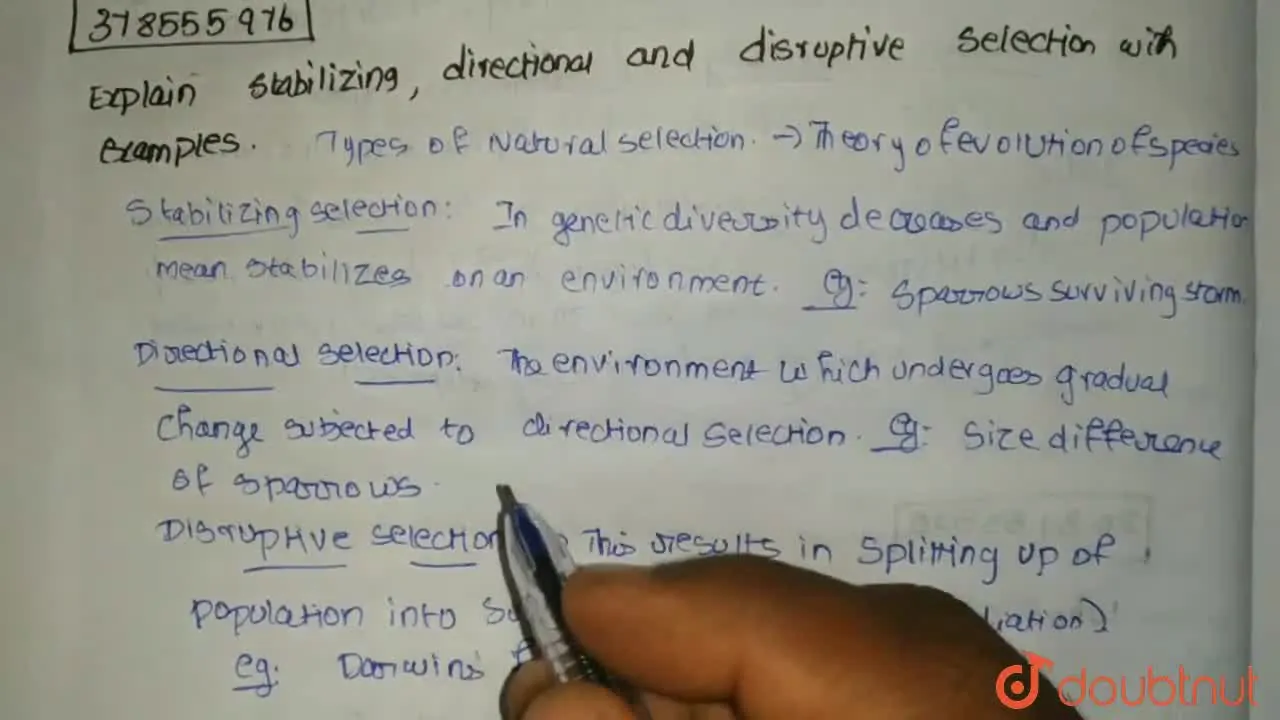 378555976
Explain stabilizing, directional and disruptive selection with
examples. Types of Natural selection. → Theory of evolution of species
Stabilizing selection: In genetic diversity decreases and population
mean stabilizes on an environment. Eg: Sparrows surviving storm.
Directional selection: The environment which undergoes gradual
change subjected to directional selection. Eg: Size difference
of sparrows.
Disruptive selection This results in splitting up of
population into
eg: Darwins
doubtnut